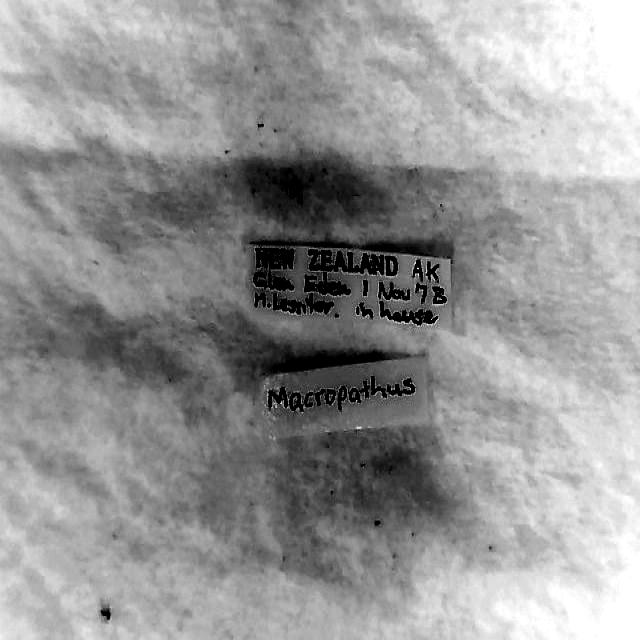 NEW ZEALAND AK
Glen Eden 1 Nov '78
in house
Macropathus